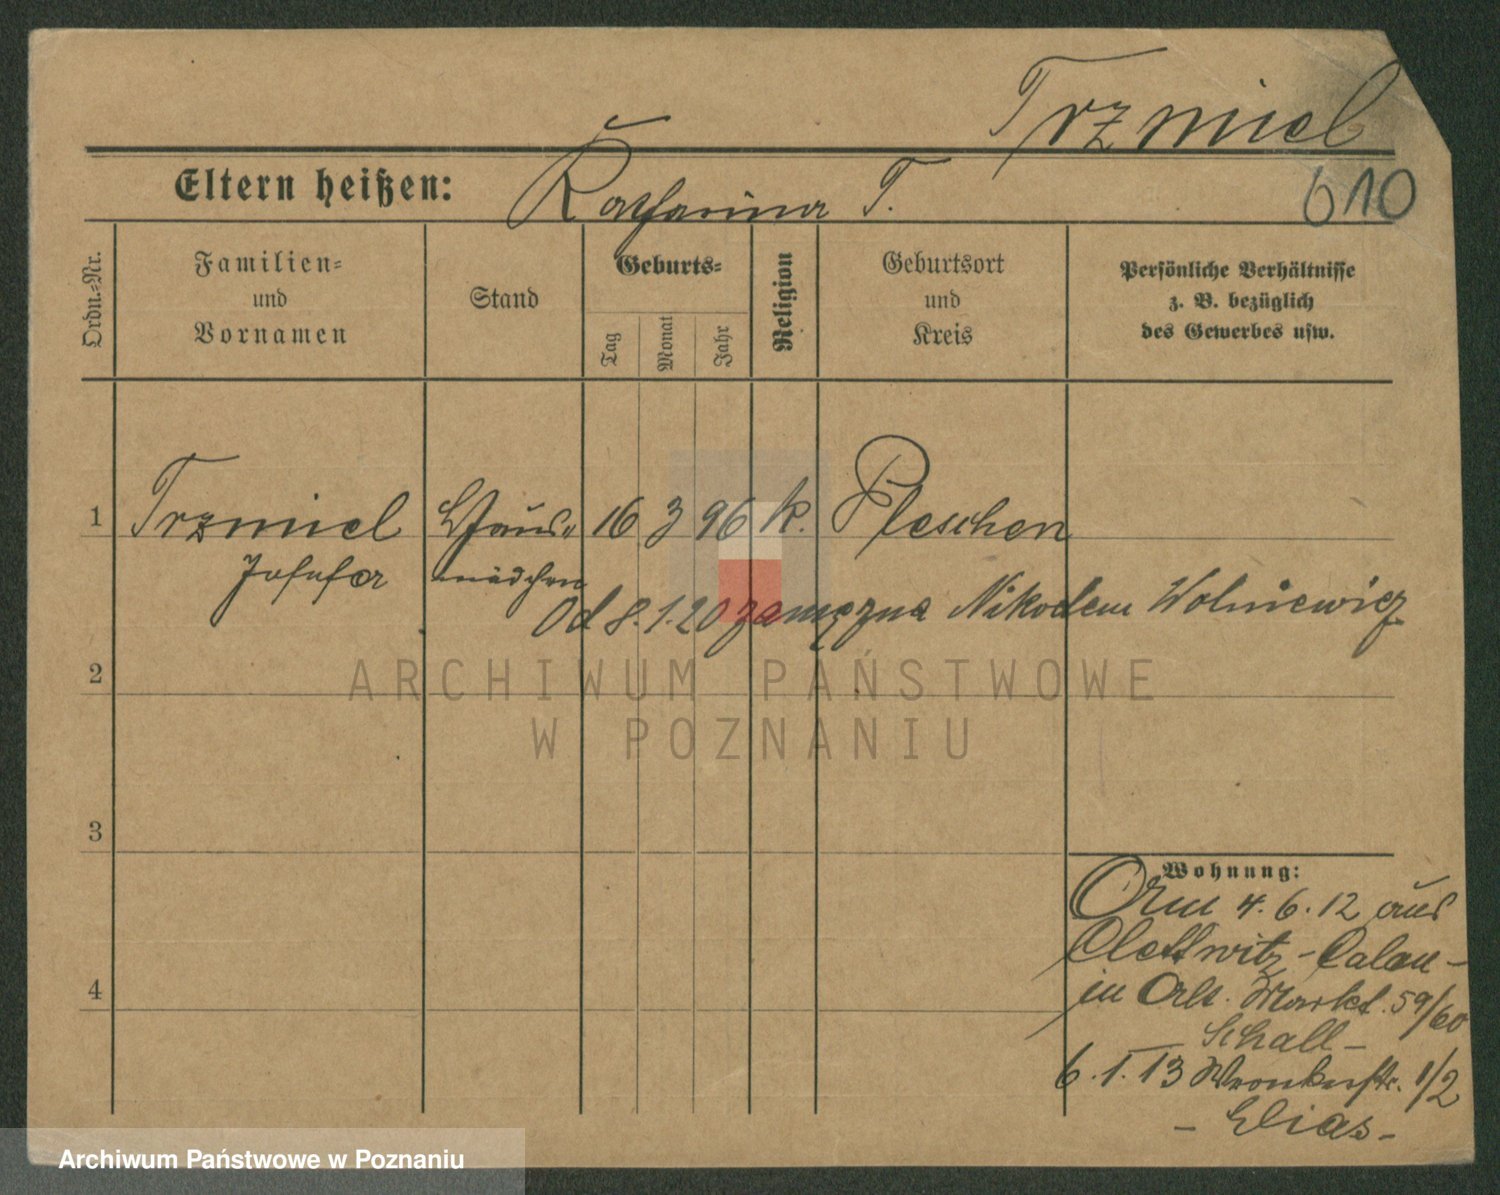 Trzmiel
Eltern heißen: Katharina T.
610
Ordn.-Nr.
Familien-
und
Vornamen
Stand
Geburts-
Tag
Monat
Jahr
Religion
Geburtsort
und
Kreis
Persönliche Verhältnisse
z. B. bezüglich
des Gewerbes usw.
1 Trzmiel Haus- 16 3 96 k. Pleschen
Josefa mädchen
Od 8.1.20 zamężna Nikodem Wolniewicz
2
3
4
Wohnung:
4.6.12 aus
Calau-
in Alt. Markt. 59/60
Schall-
6.1.13 Wronkerstr. 1/2
- Elias-
ARCHIWUM PAŃSTWOWE
W POZNANIU
Archiwum Państwowe w Poznaniu